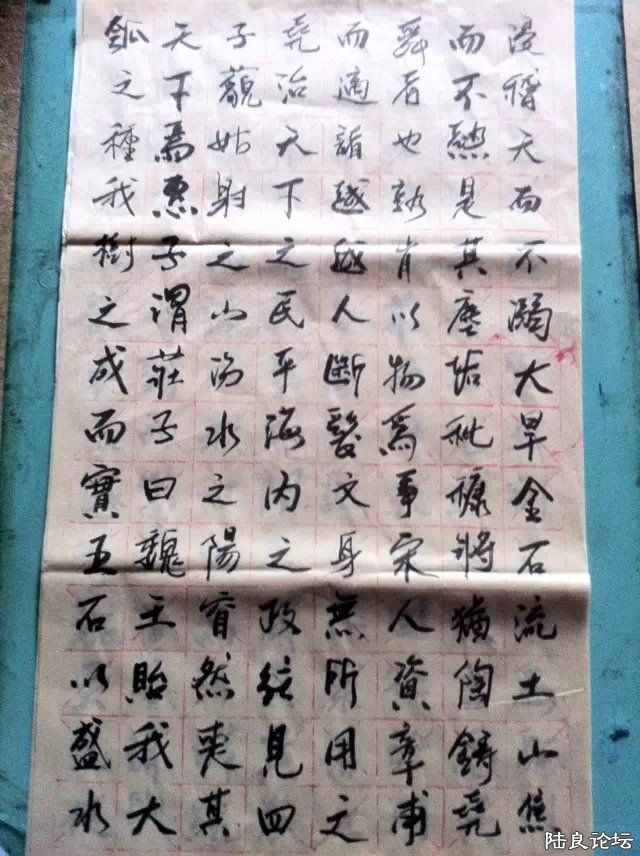 浸稽天而不溺大旱金石流土山焦
而不熱是其塵垢秕糠將猶陶鑄堯
舜者也孰肯以物爲事宋人資章甫
而適諸越越人斷髮文身無所用之
堯治天下之民平海内之政往見四
子藐姑射之山汾水之陽窅然喪其
天下焉惠子謂莊子曰魏王貽我大
瓠之種我樹之成而實五石以盛水
陆良论坛